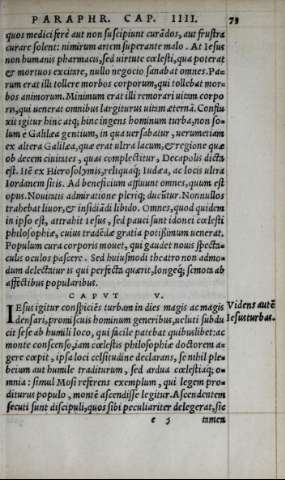 PARAPHR. CAP. IIII. 73
quos medici ferè aut non suscipiunt curādos, aut frustra
curare solent: nimirum artem superante malo. At Iesus
non humanis pharmacis, sed uirtute cœlesti, qua poterat
& mortuos excitare, nullo negocio sanabat omnes. Pa-
rum erat illi tollere morbos corporum, qui tollebat mor-
bos animorum. Minimum erat illi remorari uitam corpo
ris, qui uenerat omnibus largiturus uitam æternā. Conflu
xit igitur hinc atq; hinc ingens hominum turba, non so-
lum è Galilæa gentium, in qua uersabatur, uerumetiam
ex altera Galilæa, quæ erat ultra lacum, & regione quæ
ob decem ciuitates, quas complectitur, Decapolis dicta
est. Itē ex Hierosolymis, reliquaq; Iudæa, ac locis ultra
Iordanem sitis. Ad beneficium affluunt omnes, quum est
opus. Nouitatis admiratione pleriq; ducūtur. Nonnullos
trahebat liuor, & insidiādi libido. Omnes, quod quidem
in ipso est, attrahit Iesus, sed pauci sunt idonei cœlesti
philosophiæ, cuius tradēdæ gratia potissimum uenerat.
Populum cura corporis mouet, qui gaudet nouis specta-
culis oculos pascere. Sed huiusmodi theatro non admo-
dum delectatur is qui perfecta quærit, longeq; semota ab
affectibus popularibus.
CAPVT V.
IEsus igitur conspiciēs turbam in dies magis ac magis
densari, promiscuis hominum generibus, ueluti subdu
cit sese ab humili loco, qui facile patebat quibuslibet: ac
monte conscenso, iam cœlestis philosophiæ doctorem a-
gere cœpit, ipsa loci celsitudine declarans, se nihil ple-
beium aut humile traditurum, sed ardua cœlestiaq; o-
mnia: simul Mosi referens exemplum, qui legem pro-
diturus populo, montē ascendisse legitur. Ascendentem
secuti sunt discipuli, quos sibi peculiariter delegerat, sic
Videns autē
Iesus turbas.
e 5 tamen